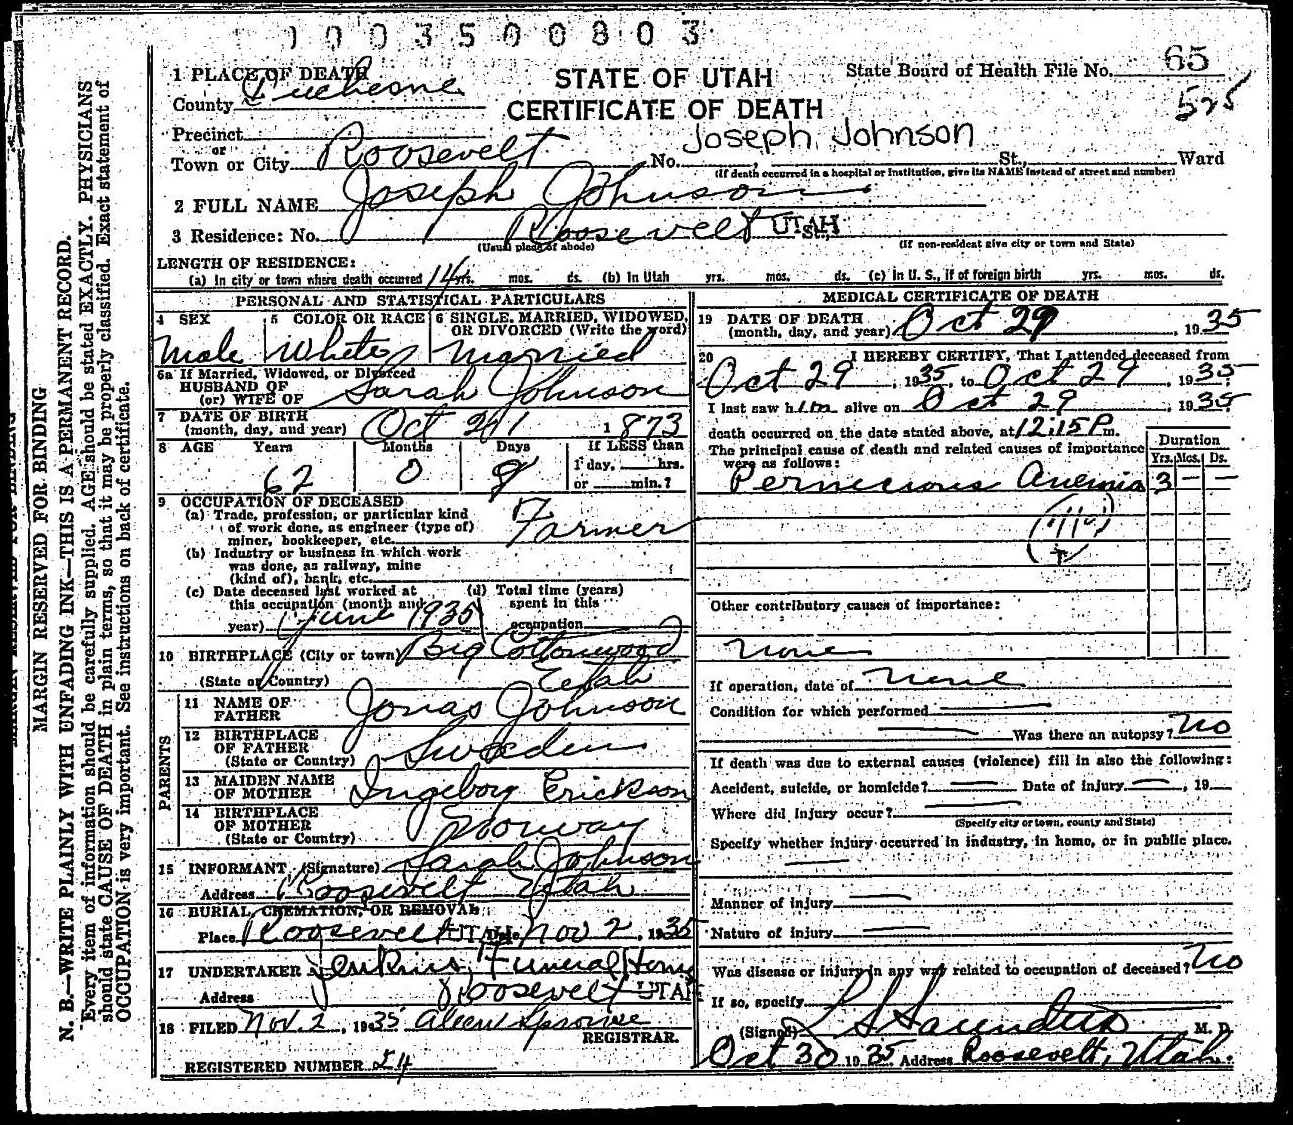 1003500803
1 PLACE OF DEATH
STATE OF UTAH
State Board of Health File No. 65
County Duchesne
CERTIFICATE OF DEATH
525
Precinct
or
Joseph Johnson
Town or City Roosevelt No. , St., Ward
(If death occurred in a hospital or institution, give its NAME instead of street and number)
2 FULL NAME Joseph Johnson
3 Residence: No. Roosevelt UTAH St.,
(Usual place of abode) (If non-resident give city or town and State)
LENGTH OF RESIDENCE:
(a) In city or town where death occurred 14 yrs. mos. ds. (b) In Utah yrs. mos. ds. (c) In U. S., if of foreign birth yrs. mos. ds.
PERSONAL AND STATISTICAL PARTICULARS
4 SEX 5 COLOR OR RACE 6 SINGLE, MARRIED, WIDOWED,
OR DIVORCED (Write the word)
Male White Married
6a If Married, Widowed, or Divorced
HUSBAND OF
(or) WIFE OF Sarah Johnson
7 DATE OF BIRTH
(month, day, and year) Oct 21 1873
8 AGE Years Months Days If LESS than
1 day, hrs.
62 0 8 or min.?
9 OCCUPATION OF DECEASED
(a) Trade, profession, or particular kind
of work done, as engineer (type of)
miner, bookkeeper, etc. Farmer
(b) Industry or business in which work
was done, as railway, mine
(kind of), bank, etc.
(c) Date deceased last worked at (d) Total time (years)
this occupation (month and spent in this
year) June 1935 occupation
10 BIRTHPLACE (City or town) Big Cottonwood
(State or Country) Utah
PARENTS
11 NAME OF
FATHER Jonas Johnson
12 BIRTHPLACE
OF FATHER
(State or Country) Sweden
13 MAIDEN NAME
OF MOTHER Ingebory Erickson
14 BIRTHPLACE
OF MOTHER
(State or Country) Norway
15 INFORMANT (Signature) Sarah Johnson
Address Roosevelt Utah
16 BURIAL, CREMATION, OR REMOVAL
Place Roosevelt UTAH Date Nov 2, 1935
17 UNDERTAKER Jenkins Funeral Home
Address Roosevelt UTAH
18 FILED Nov. 2, 1935 Aleen Sprouse
REGISTRAR.
REGISTERED NUMBER 24
MEDICAL CERTIFICATE OF DEATH
19 DATE OF DEATH
(month, day, and year) Oct 29, 1935
20 I HEREBY CERTIFY, That I attended deceased from
Oct 29, 1935, to Oct 29, 1935.
I last saw him alive on Oct 29, 1935
death occurred on the date stated above, at 12:15 P m.
The principal cause of death and related causes of importance
were as follows:
Duration
Yrs. Mos. Ds.
Pernicious Anemia 3 — —
Other contributory causes of importance:
none
If operation, date of none
Condition for which performed
Was there an autopsy? No
If death was due to external causes (violence) fill in also the following:
Accident, suicide, or homicide? — Date of injury —, 19
Where did injury occur?
(Specify city or town, county and State)
Specify whether injury occurred in industry, in home, or in public place.
Manner of injury
Nature of injury
Was disease or injury in any way related to occupation of deceased? No
If so, specify
(Signed) L S Saunders M. D.
Oct 30 1935 Address Roosevelt, Utah.
MARGIN RESERVED FOR BINDING
N. B.—WRITE PLAINLY WITH UNFADING INK—THIS IS A PERMANENT RECORD.
Every item of information should be carefully supplied. AGE should be stated EXACTLY. PHYSICIANS
should state CAUSE OF DEATH in plain terms, so that it may be properly classified. Exact statement of
OCCUPATION is very important. See instructions on back of certificate.